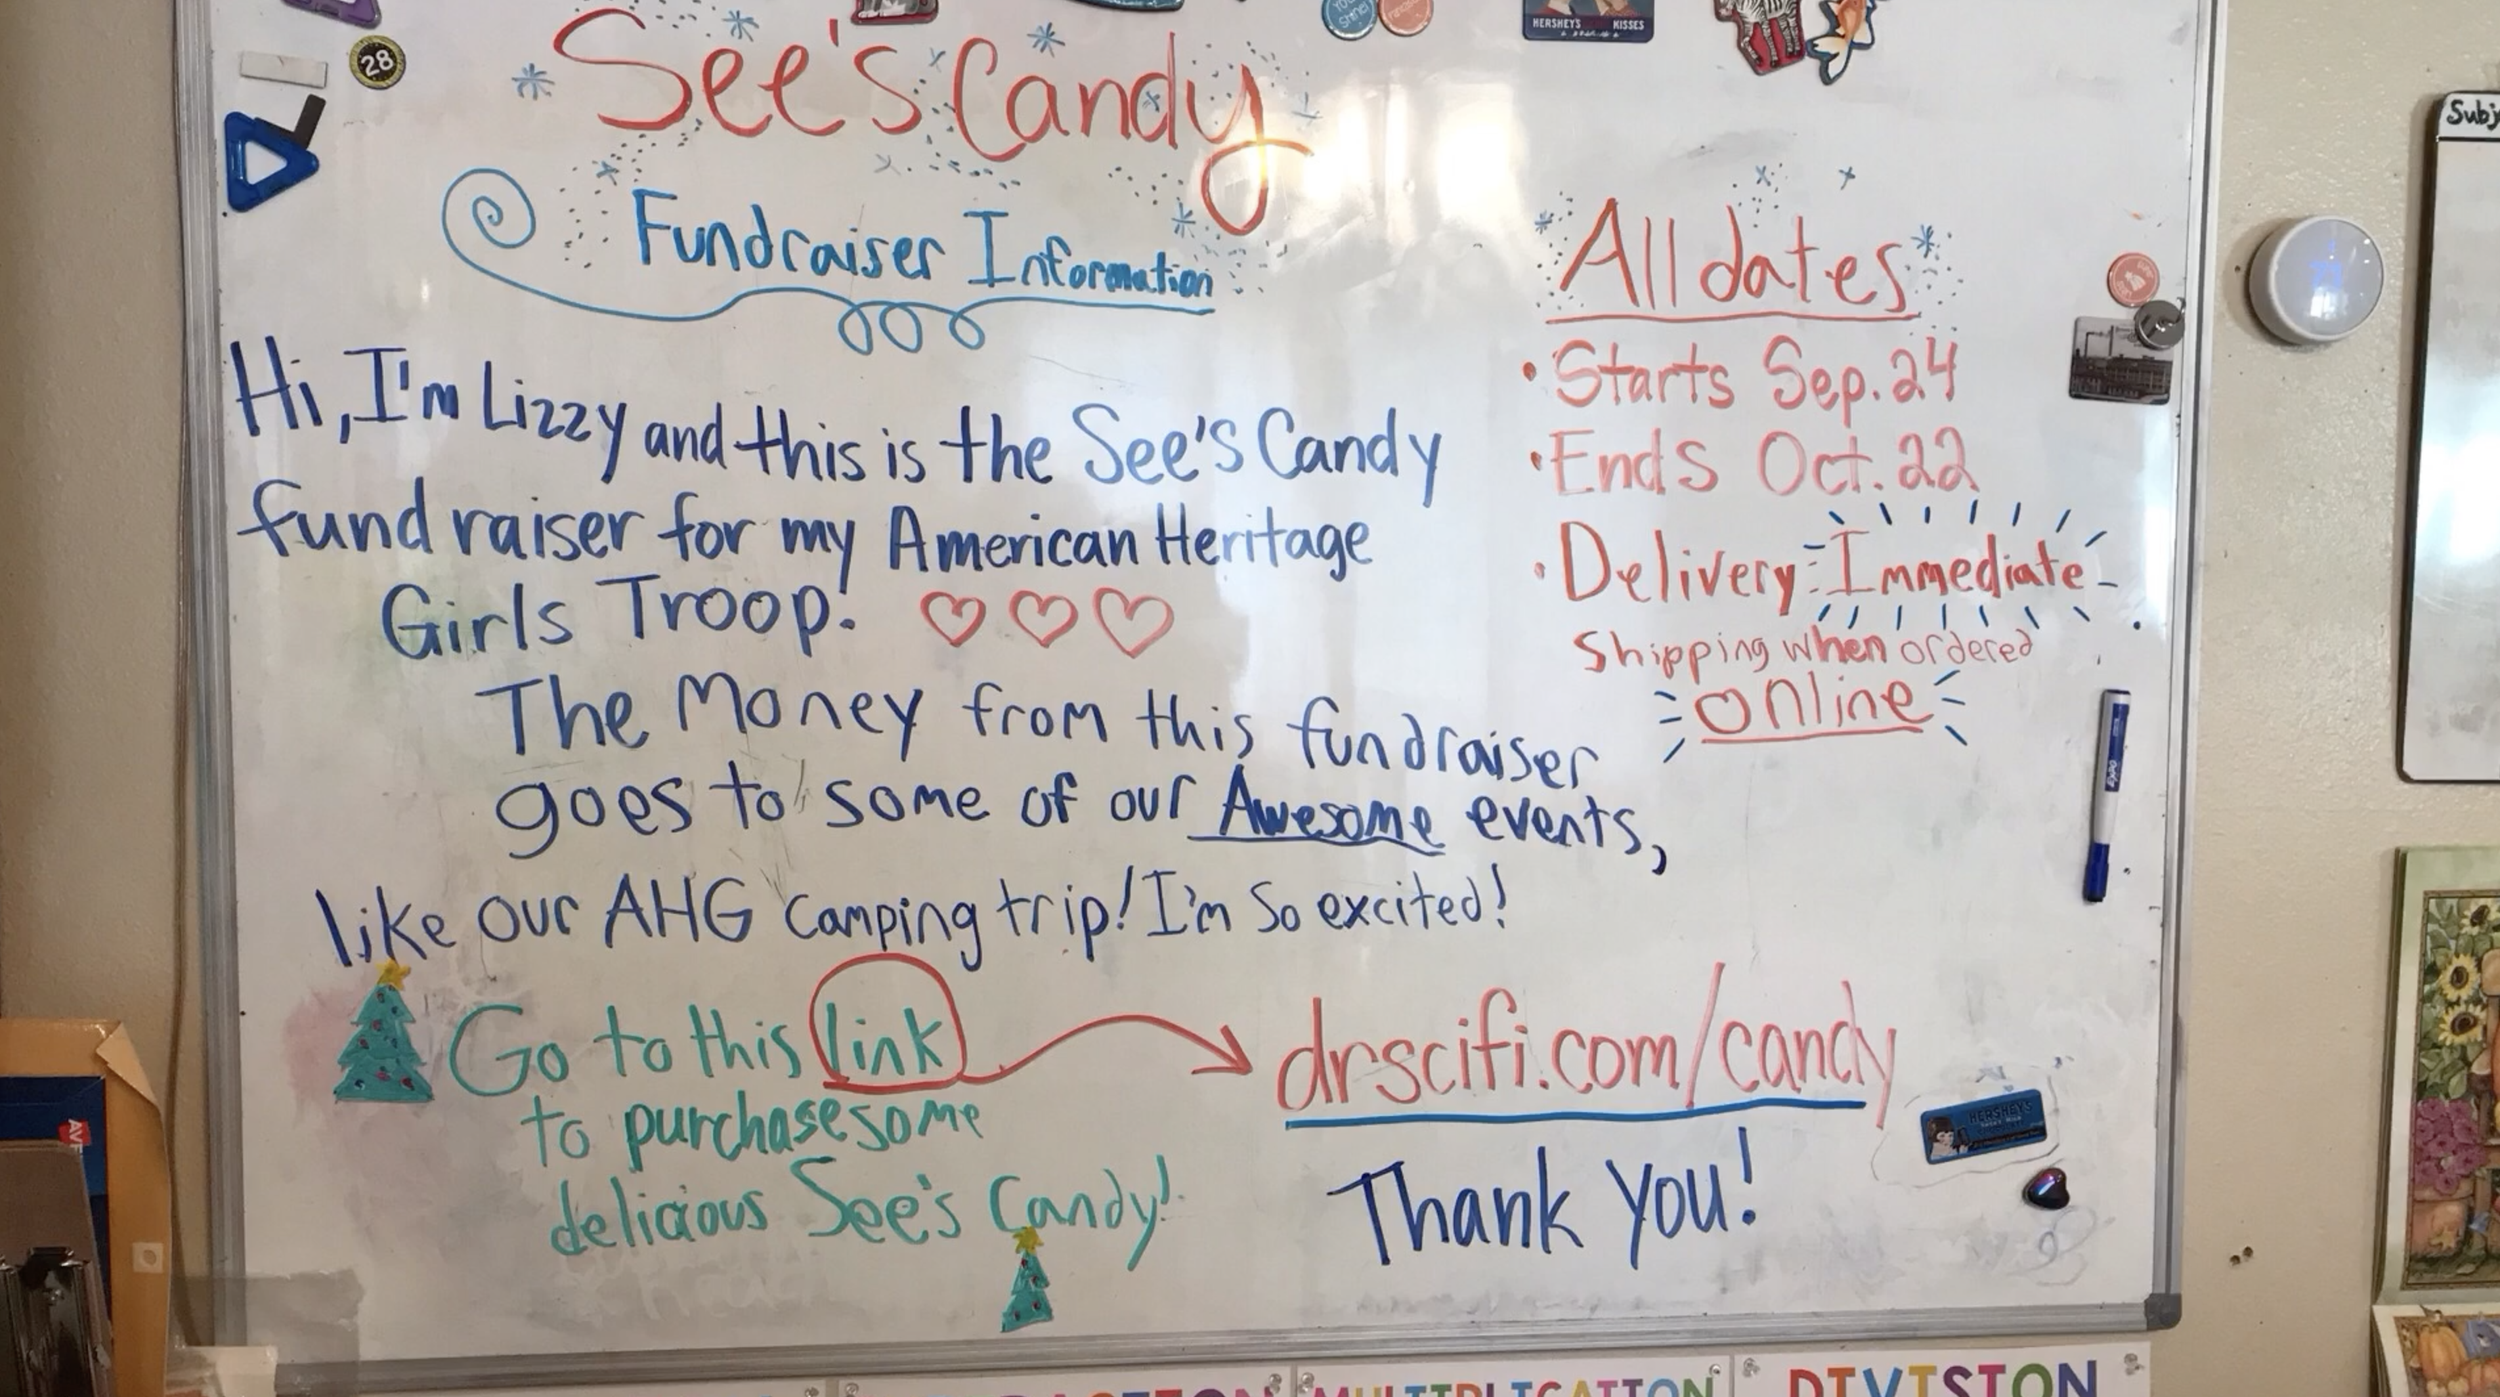 See's Candy
Fundraiser Information
Hi, I'm Lizzy and this is the See's Candy
fundraiser for my American Heritage
Girls Troop!
The Money from this fundraiser
goes to some of our Awesome events,
like our AHG camping trip! I'm so excited!
Go to this link
to purchase some
delicious See's Candy!
All dates
• Starts Sep. 24
• Ends Oct. 22
• Delivery: Immediate
Shipping when ordered
online
drscifi.com/candy
Thank you!
28
HERSHEY'S KISSES
HERSHEY'S
EXPO
MULTIPLICATION
DIVISION